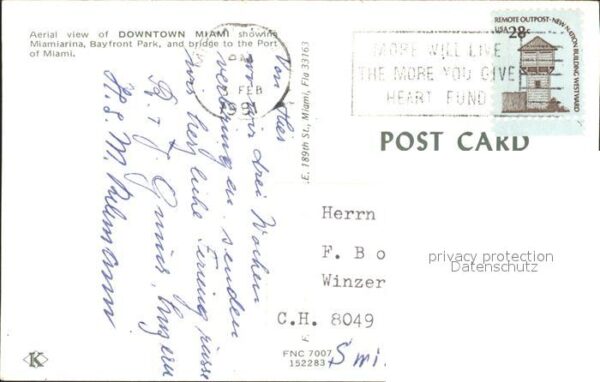 Aerial view of DOWNTOWN MIAMI showing
Miamiarina, Bayfront Park, and bridge to the Port
of Miami.
Von hier
wo wir drei Wochen
verbringen senden
wir herzliche Feriengrüsse
H. u. M.
FEB
.E. 189th St., Miami, Fla 33163
MORE WILL LIVE
THE MORE YOU GIVE
HEART FUND
REMOTE OUTPOST·NEW NATION BUILDING WESTWARD
USA 28c
POST CARD
Herrn
F. Bo
Winzer
C.H. 8049
privacy protection
Datenschutz
K
FNC 7007
152283